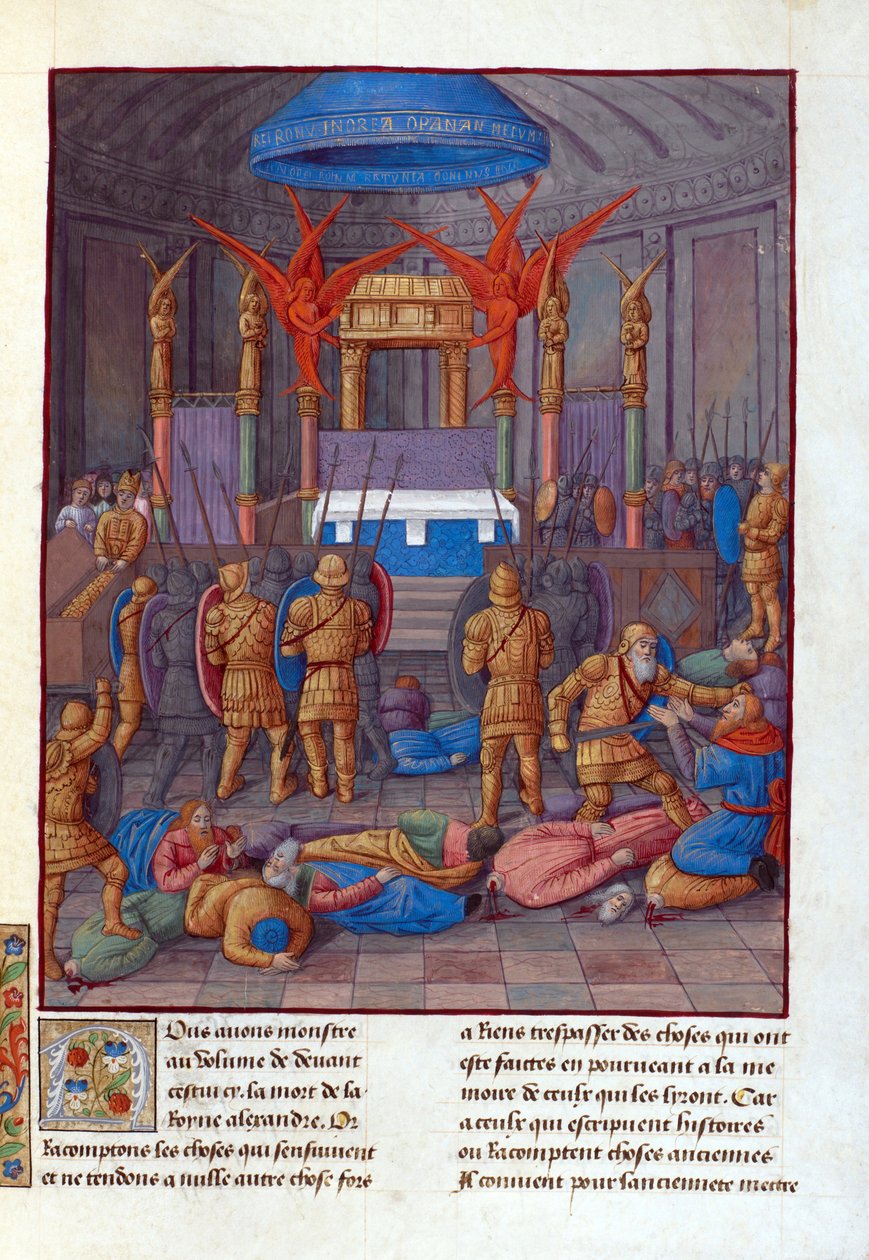 REI RONV INOREA OPANAN MECVM
Nous avons monstre
au volume de devant
cestui cy. la mort de la
Royne alexandre. Or
Racomptons les choses qui sensuiuent
et ne tendons a nulle autre chose fors
a Riens trespasser des choses qui ont
este faictes en pourueant a la me
moire de ceulx qui les lyront. Car
a ceulx qui escripuent histoires
ou Racomptent choses anciennes
Il conuient pour lanciennete mettre